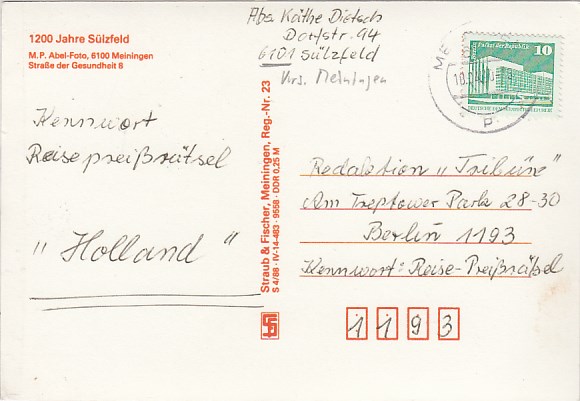 1200 Jahre Sülzfeld
M. P. Abel-Foto, 6100 Meiningen
Straße der Gesundheit 8
Abs. Käthe Dietsch
Dorfstr. 94
6101 Sülzfeld
Krs. Meiningen
Palast der Republik
10
Kennwort
Reisepreißrätsel
„Holland"
Straub & Fischer, Meiningen, Reg.-Nr. 23
S 4/88 · IV-14-483 · 9558 · DDR 0,25 M
Redaktion „Tribüne"
Am Treptower Park 28-30
Berlin 1193
Kennwort: Reise-Preißrätsel
1 1 9 3